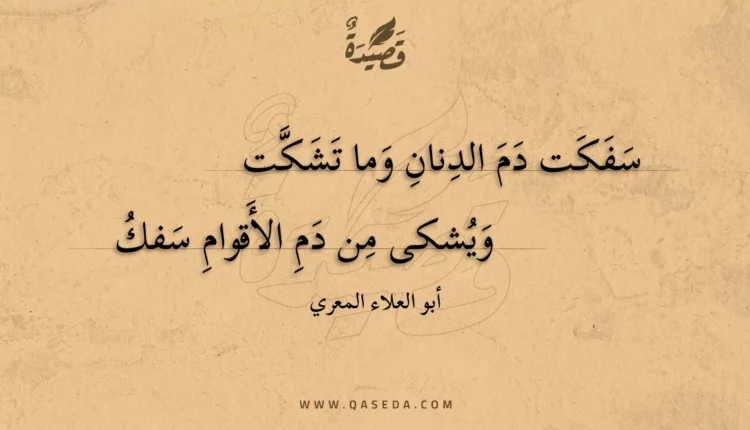 قَصِيدَةٌ
سَفَكَت دَمَ الدِنانِ وَما تَشَكَّت
وَيُشكى مِن دَمِ الأَقوامِ سَفكُ
أبو العلاء المعري
WWW.QASEDA.COM